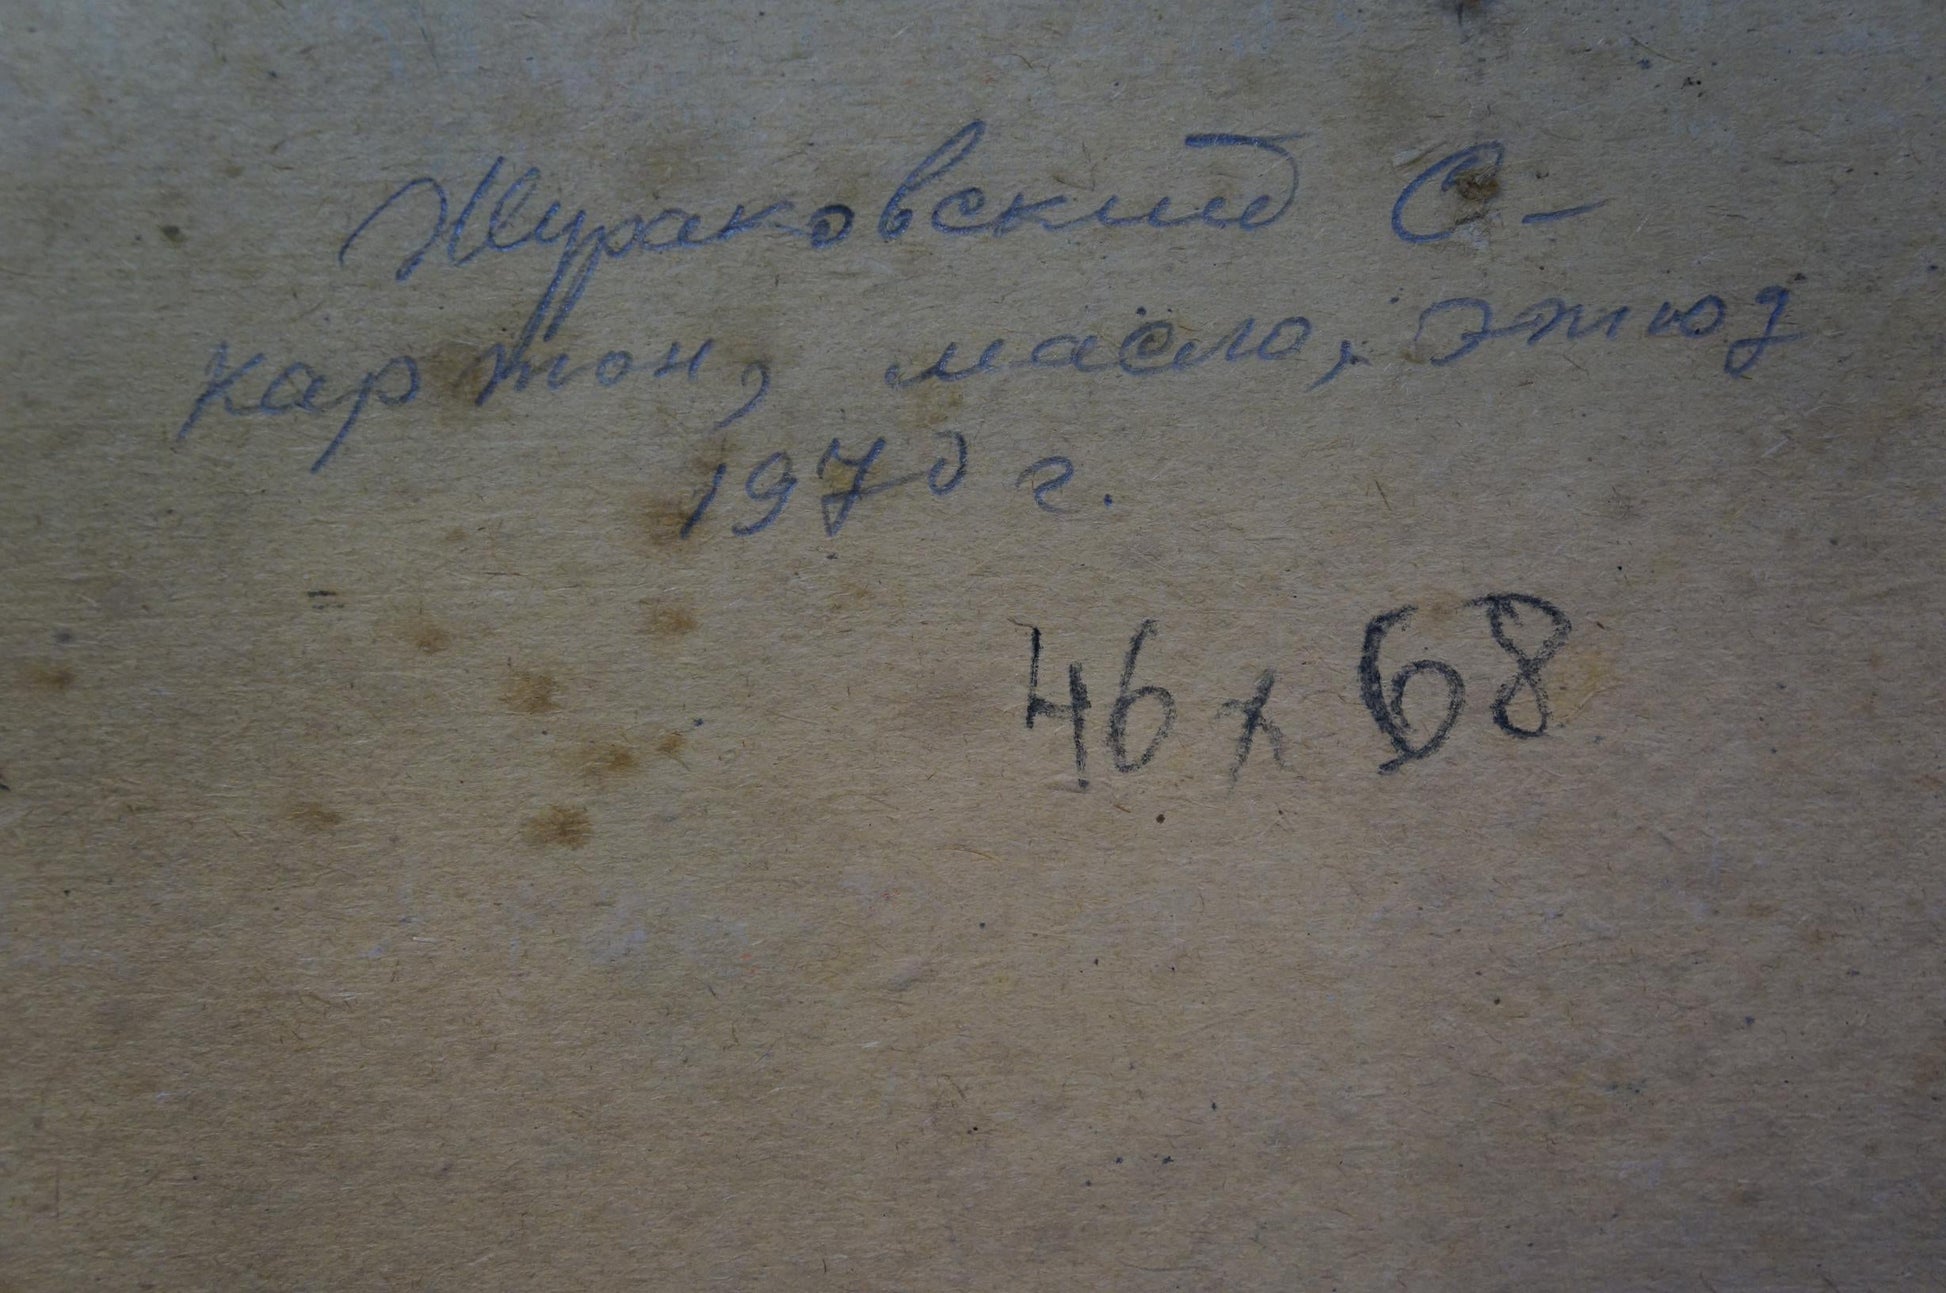 Жураковский С -
картон, масло, этюд
1970 г.
46 х 68